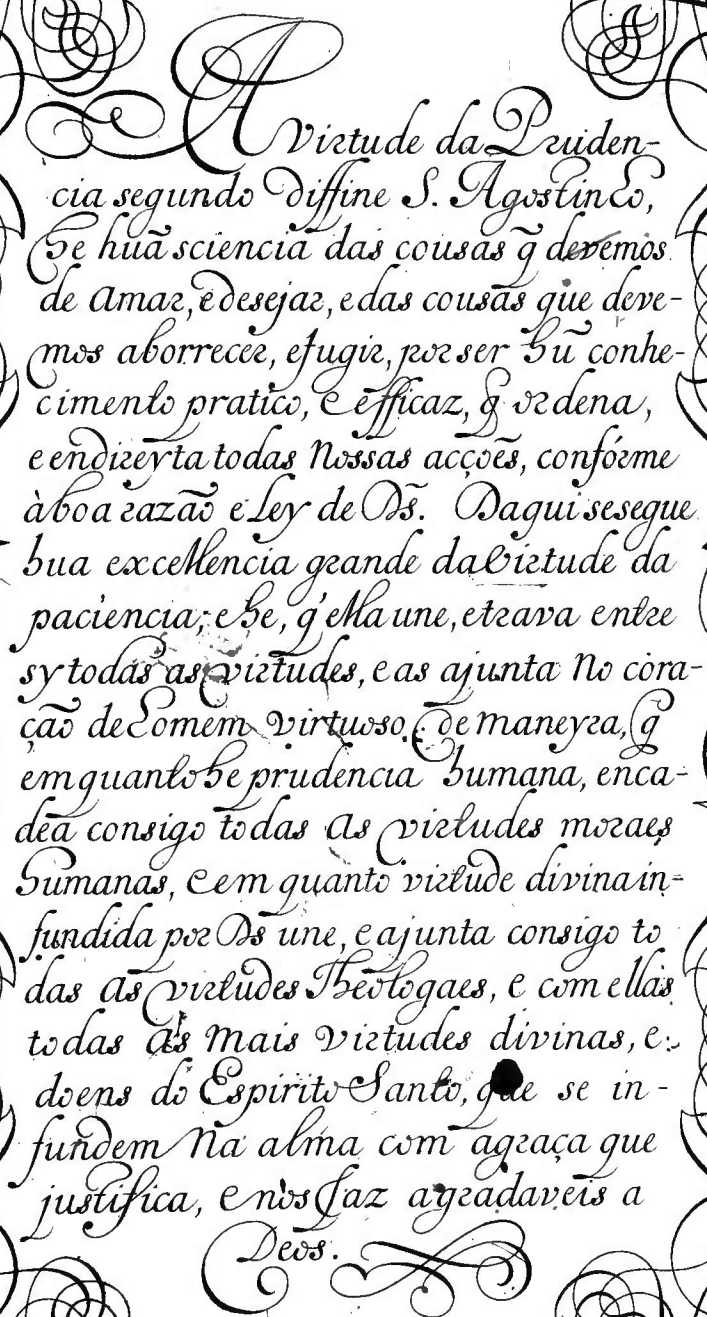 A Virtude da Pruden-
cia segundo diffine S. Agostinho,
he huã sciencia das cousas q̃ devemos
de amar, e desejar, e das cousas que deve-
mos aborrecer, e fugir, por ser hũ conhe-
cimento pratico, e efficaz, q̃ ordena,
e endireyta todas Nossas acções, confórme
à boa razaõ e Ley de Ds̃. Daqui se segue
hua excellencia grande da Virtude da
paciencia; e he, q̃ ella une, e trava entre
sy todas as virtudes, e as ajunta No cora-
çaõ de homem virtuoso, de maneyra, q̃
em quanto he prudencia humana, enca-
dea consigo todas as virtudes moraes
humanas, e em quanto virtude divina in-
fundida por Ds̃ une, e ajunta consigo to
das as virtudes Theologaes, e com ellas
todas as mais virtudes divinas, e
doens do Espirito Santo, que se in-
fundem Na alma com a graça que
justifica, e nos faz agradaveis a
Deos.